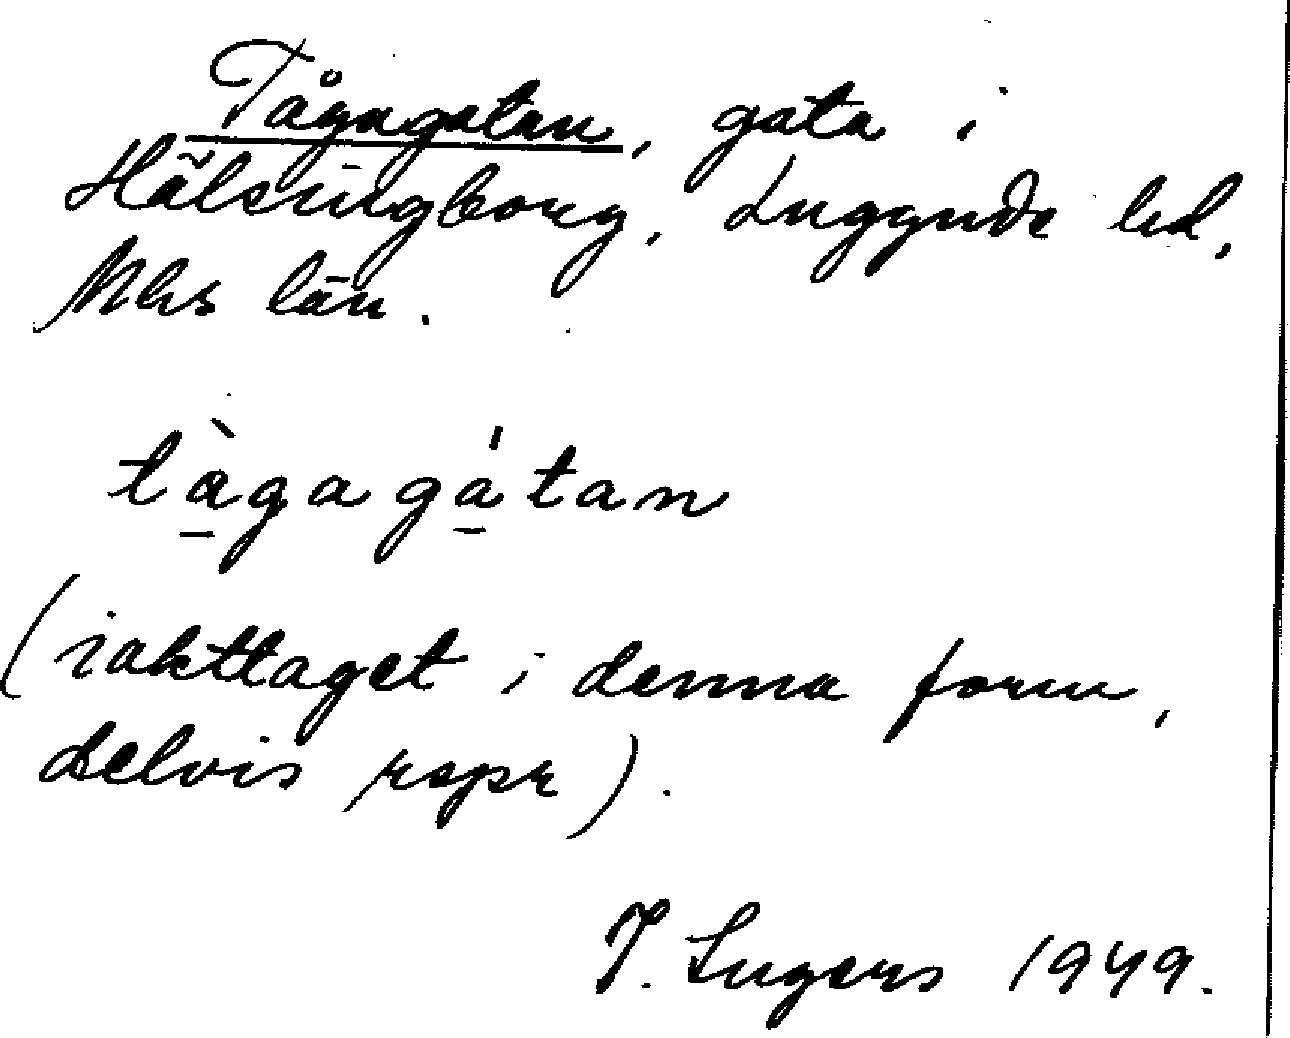 Tågagatan, gata i
Hälsingborg, Luggude hd,
Mhs län.
tàgagátan
(iakttaget i denna form,
delvis rspr).
J. Sugers 1949.